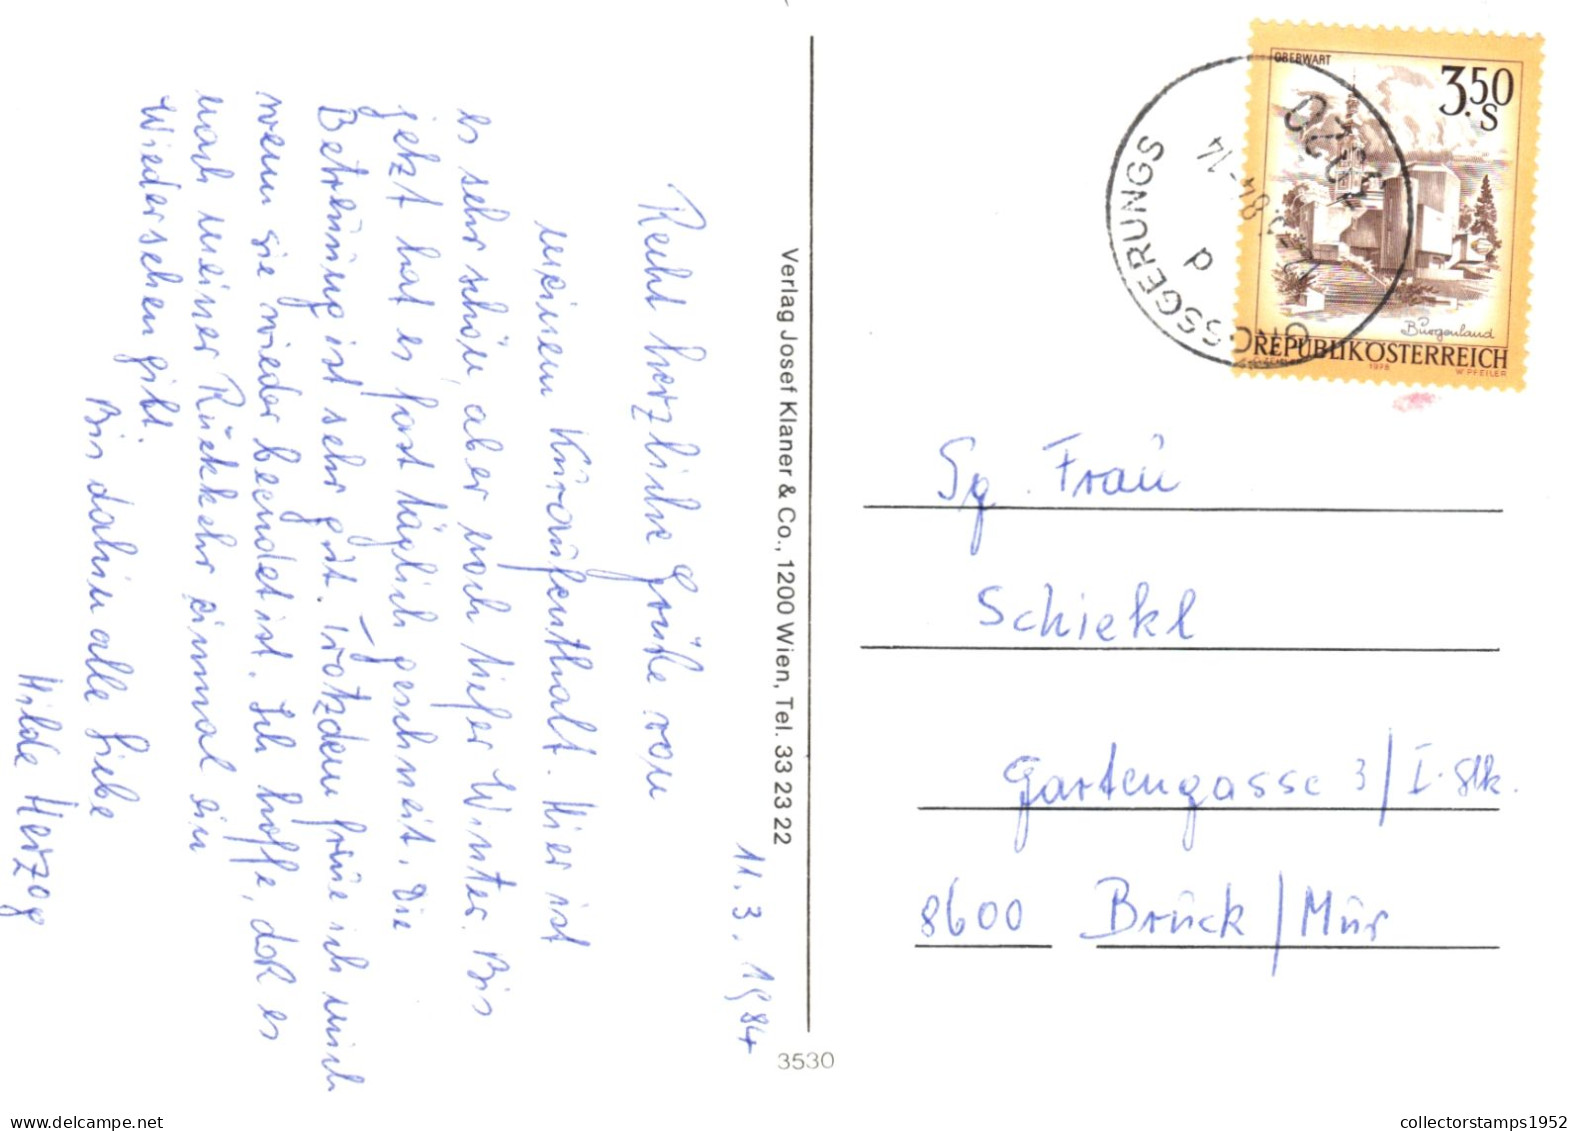 11.3.1984
Recht herzliche Grüße von
meinem Kuraufenthalt. Hier ist
es sehr schön, aber noch tiefer Winter. Bis
jetzt hat es fast täglich geschneit. Die
Betreuung ist sehr gut. Trotzdem freue ich mich
wenn sie wieder beendet ist. Ich hoffe, daß es
nach meiner Rückkehr einmal ein
Wiedersehen gibt.
Bis dahin alle Liebe
Hilde Herzog
Verlag Josef Klaner & Co., 1200 Wien, Tel. 33 23 22
3530
OBERWART
3.50
S
Burgenland
REPUBLIK ÖSTERREICH
1978
W. PFEILER
GROSSGERUNGS
3920
84-14
d
Sg. Frau
Schiekl
Gartengasse 3/I. Stk.
8600 Bruck/Mur
collectorstamps1952